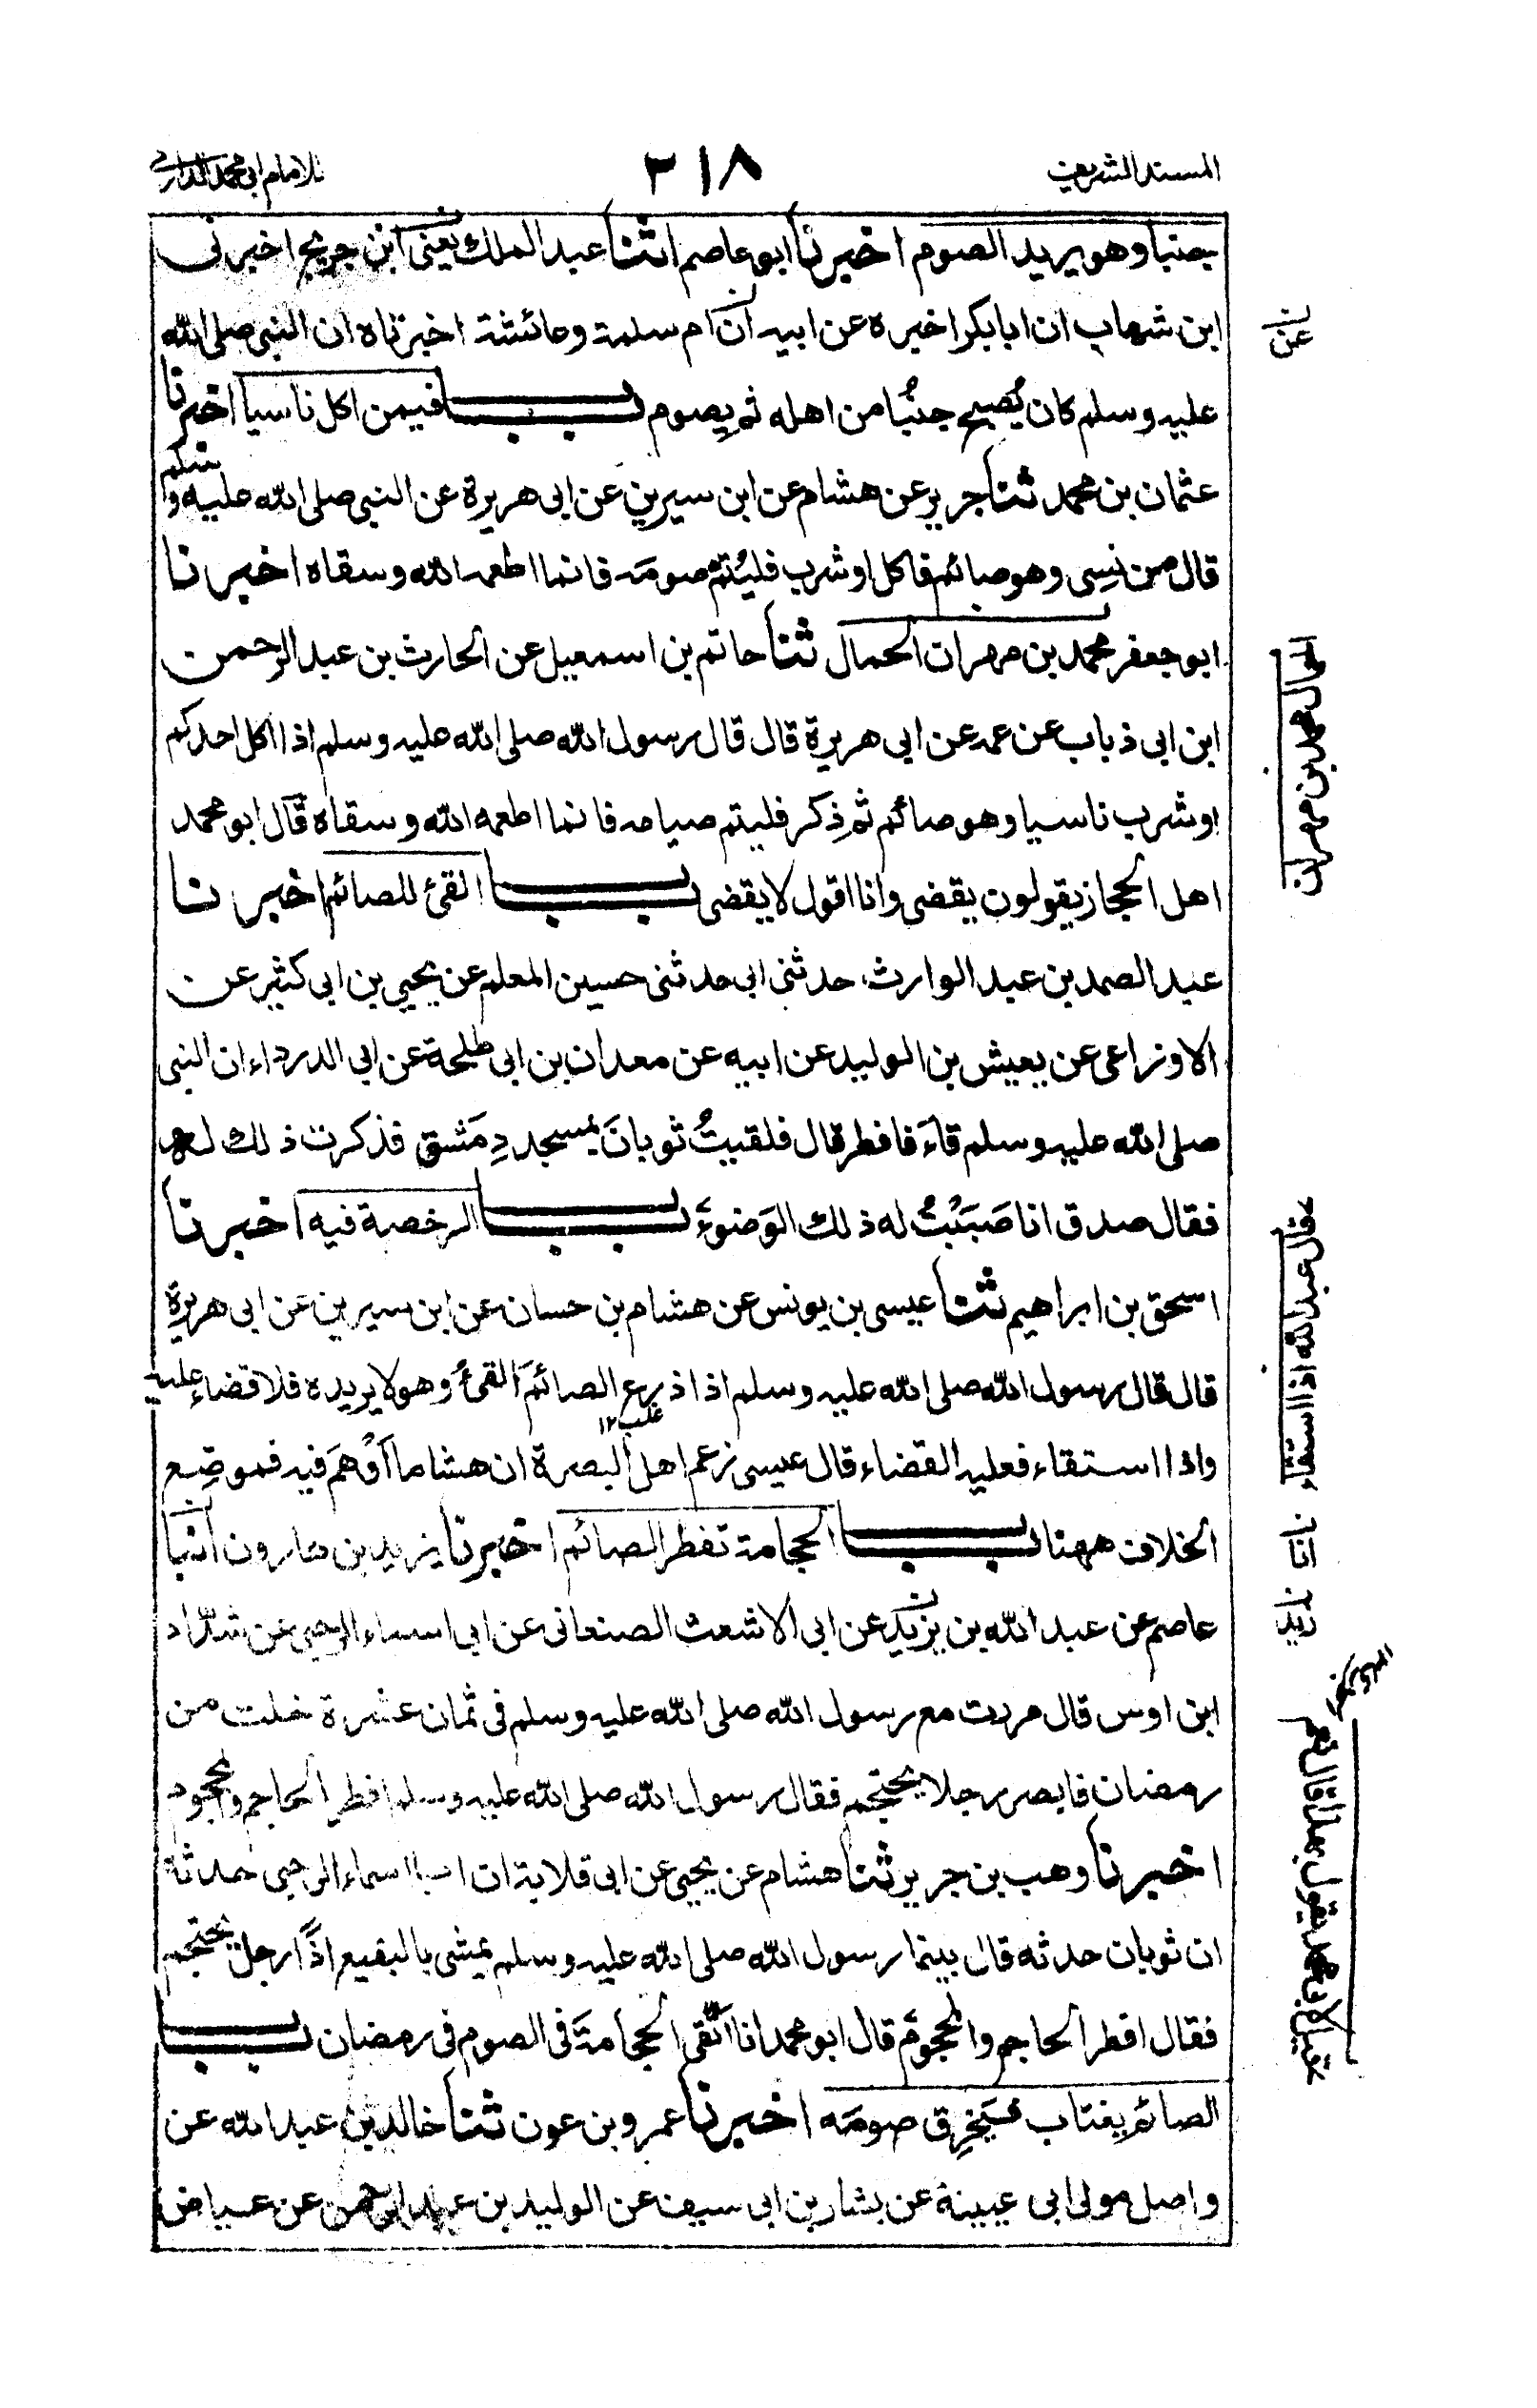 المسند الشريف
٢١٨
للامام ابي محمد الدارمي
جنبا وهو يريد الصوم اخبرنا ابو عاصم انثنا عبد الملك يعنى ابن جريج اخبرنى
ابن شهاب ان ابا بكر اخبره عن ابيه ان ام سلمة وعائشة اخبرتاه ان النبى صلى الله
عليه وسلم كان يُصبح جنبًا من اهله ثم يصوم بــاب فيمن اكل ناسيا اخبرنا
عثمان بن محمد ثنا جرير عن هشام عن ابن سيرين عن ابى هريرة عن النبى صلى الله عليه وسلم
قال من نسِى وهو صائم فاكل او شرب فليُتمّ صومَه فانما اطعمه الله وسقاه اخبرنا
ابو جعفر محمد بن مهران الحمال ثنا حاتم بن اسمعيل عن الحارث بن عبد الرحمن
ابن ابى ذباب عن عمه عن ابى هريرة قال قال رسول الله صلى الله عليه وسلم اذا اكل احدكم
او شرب ناسيا وهو صائم ثم ذكر فليتم صيامه فانما اطعمه الله وسقاه قال ابو محمد
اهل الحجاز يقولون يقضى وانا اقول لا يقضى بــاب القئ للصائم اخبرنا
عبد الصمد بن عبد الوارث حدثنى ابى حدثنى حسين المعلم عن يحيى بن ابى كثير عن
الاوزاعى عن يعيش بن الوليد عن ابيه عن معدان بن ابى طلحة عن ابى الدرداء ان النبى
صلى الله عليه وسلم قاءَ فافطر قال فلقيتُ ثوبانَ بمسجد دِمَشق فذكرت ذلك له
فقال صدق انا صَبَبْتُ له ذلك الوَضوءَ بــاب الرخصة فيه اخبرنا
اسحق بن ابراهيم ثنا عيسى بن يونس عن هشام بن حسان عن ابن سيرين عن ابى هريرة
قال قال رسول الله صلى الله عليه وسلم اذا ذرع الصائمَ القئُ وهو لا يريده فلا قضاء عليه
غلب ١٢
واذا استقاء فعليه القضاء قال عيسى زعم اهل البصرة ان هشاما اَوْهَمَ فيه فموضِع
الخلاف ههنا بــاب الحجامة تفطر الصائم اخبرنا يزيد بن هارون انبا
عاصم عن عبد الله بن يزيد عن ابى الاشعث الصنعانى عن ابى اسماء الرحبى عن شدّاد
ابن اوس قال مررت مع رسول الله صلى الله عليه وسلم فى ثمان عشرة خلت من
رمضان فابصر رجلا يحتجم فقال رسول الله صلى الله عليه وسلم افطر الحاجم والمحجوم
اخبرنا وهب بن جرير ثنا هشام عن يحيى عن ابى قلابة ان ابا اسماء الرحبى حدثه
ان ثوبان حدثه قال بينما رسول الله صلى الله عليه وسلم يمشى بالبقيع اذا رجل يحتجم
فقال افطر الحاجم والمحجومُ قال ابو محمد انا اَتَّقى الحجامةَ فى الصوم فى رمضان بــاب
الصائم يغتاب فيَخرِق صومَه اخبرنا عمرو بن عون ثنا خالد بن عبد الله عن
واصل مولى ابى عيينة عن بشار بن ابى سيف عن الوليد بن عبد الرحمن عن عياض
عن
الحمال محمد بن مهران
قال عبد الله اذا استقاء
انا
زيد
قيل لابى محمد يقول بهذا قال نعم